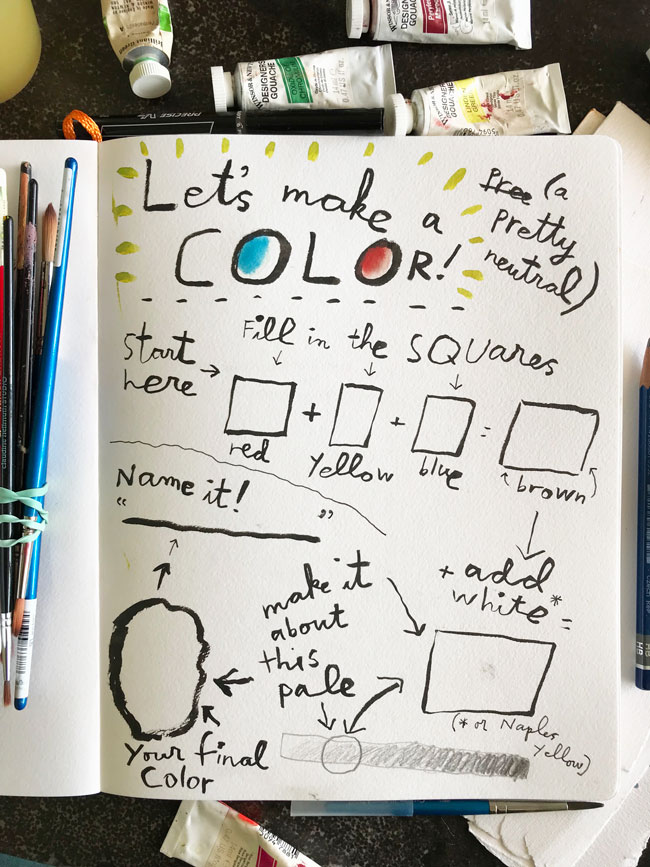 WINSOR & NEWTON
DESIGNERS
GOUACHE
DESIGNERS
GOUACHE
DESIGNERS
GOUACHE
PRECISE
Let's make a
COLOR!
Free (a
pretty
neutral)
Start
here
Fill in the SQUares
+ + =
red yellow blue brown
Name it!
“ ”
+ add
white* =
make it
about
this
pale
(* or Naples
Yellow)
Your final
Color
HB